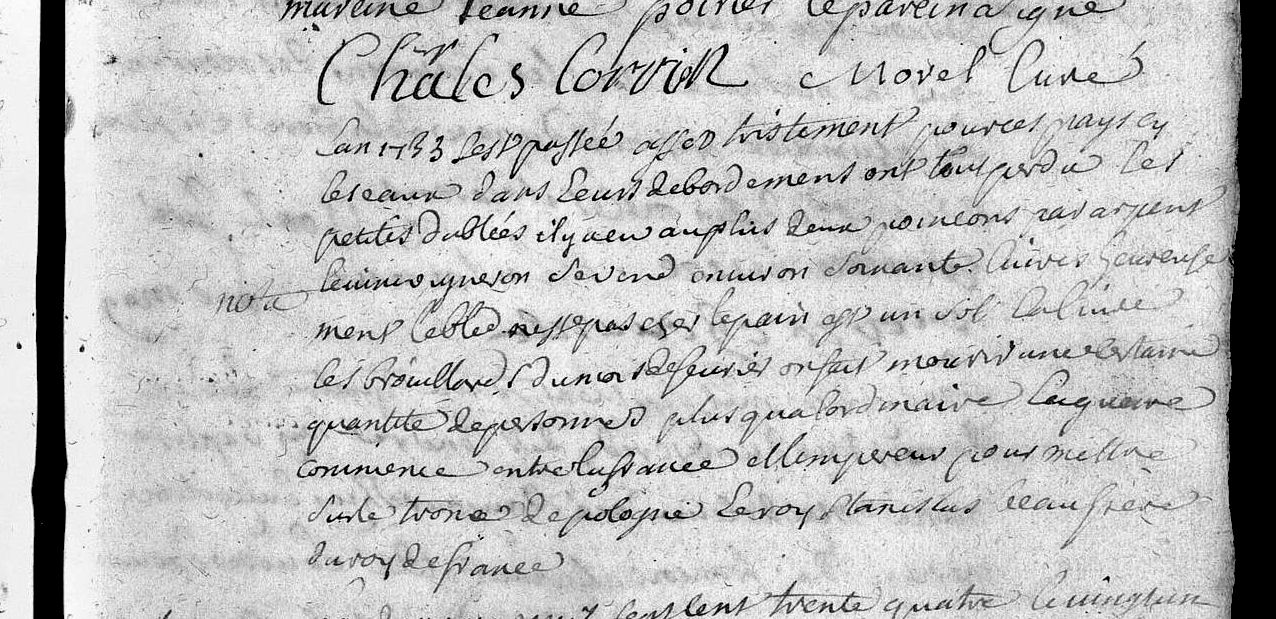 mareine Jeanne poirier le parein a signé
Charles Corvin Morel Curé
Lan 1733 sest passée assed tristement pour ces pays cy
les eaux dans leurs debordemens ont tout perdu les
petites dublées il y a eu au plus deux poincons par arpent
le vin vigneron se vend environ soixante livres heureuse
nota
ment le bled nest pas cher le pain est un sol la livre
les brouillards du mois de feuvrier on fait mourir une certaine
quantité de personnes plus qua lordinaire la guerre
commence entre la france et lempereur pour mettre
sur le trone de pologne le roy stanislas beaufrere
du roy de france
sept cent trente quatre le vingt un